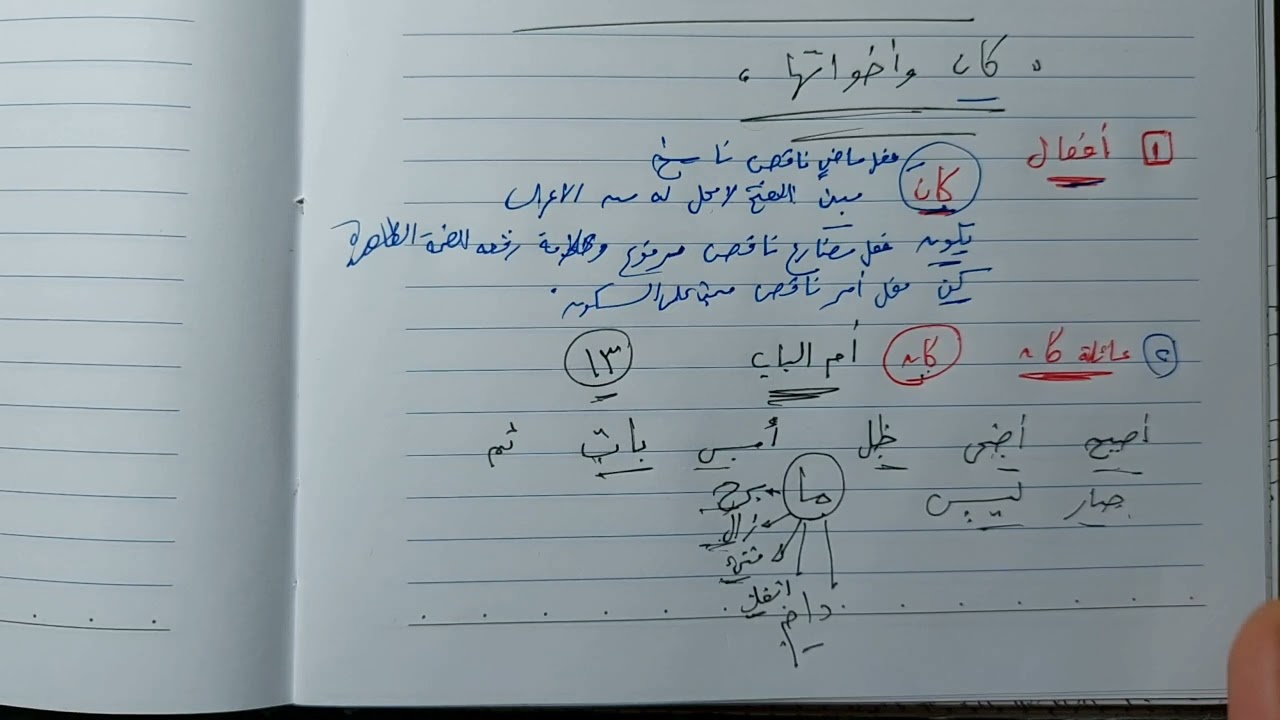 « كان وأخواتها »
١ أفعال
كان فعل ماضٍ ناقص ناسخ
مبني الفتح لا محل له من الاعراب
يكون فعل مضارع ناقص مرفوع وعلامة رفعه الضمة الظاهرة
كن فعل أمر ناقص مبني على السكون.
٢ عائلة كان كان أم الباب ١٣
أصبح أضحى ظل أمسى بات ثم
صار ليس ما برح
زال
فتئ
انفك
دام